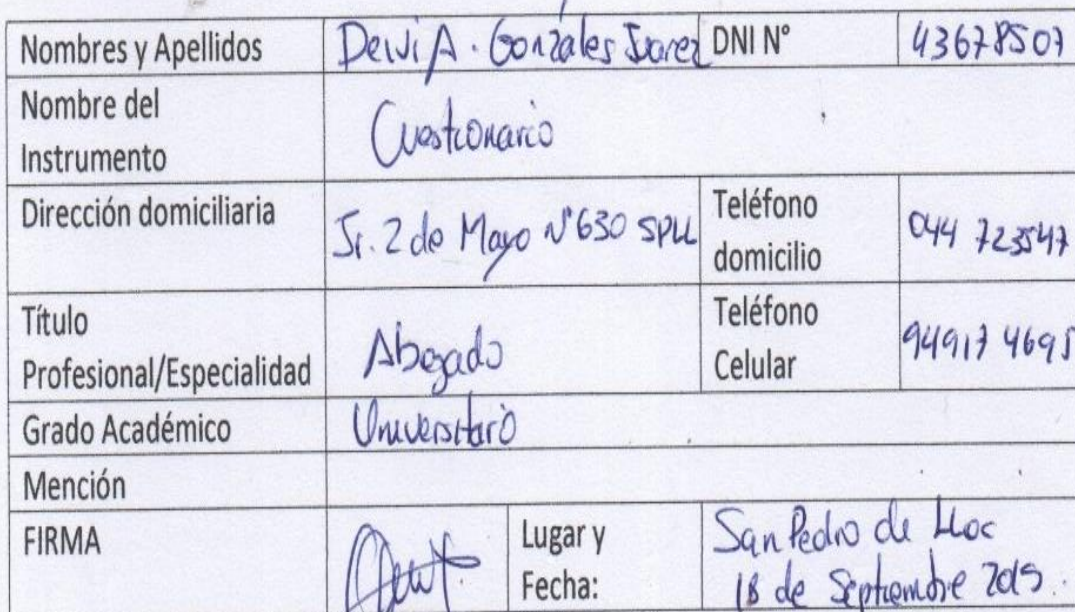 Nombres y Apellidos Deivi A. Gonzáles Juarez DNI N° 43678507
Nombre del
Instrumento Cuestionario
Dirección domiciliaria Jr. 2 de Mayo N° 630 SPLL Teléfono
domicilio 044 723547
Título
Profesional/Especialidad Abogado Teléfono
Celular 949174695
Grado Académico Universitario
Mención
FIRMA Lugar y
Fecha: San Pedro de Lloc
18 de Septiembre 2019.